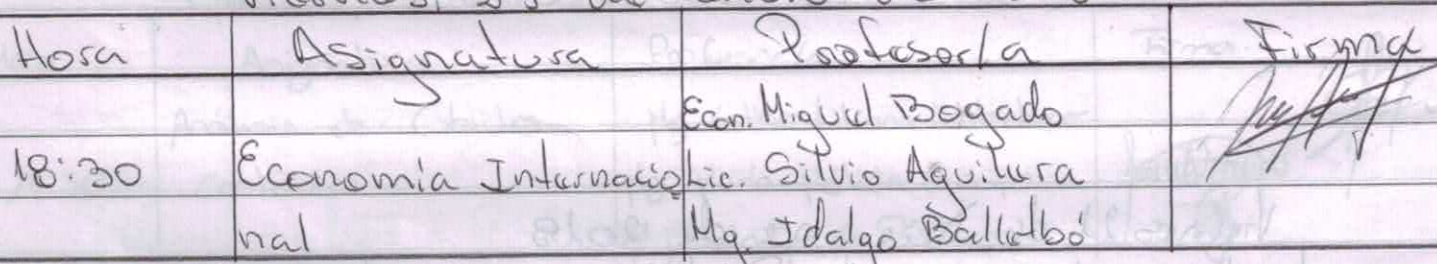 Hora Asignatura Profesor/a Firma
Econ. Miguel Bogado
18:30 Economia Internacio Lic. Silvio Aguilera
nal Mg. Idalgo Balletbó